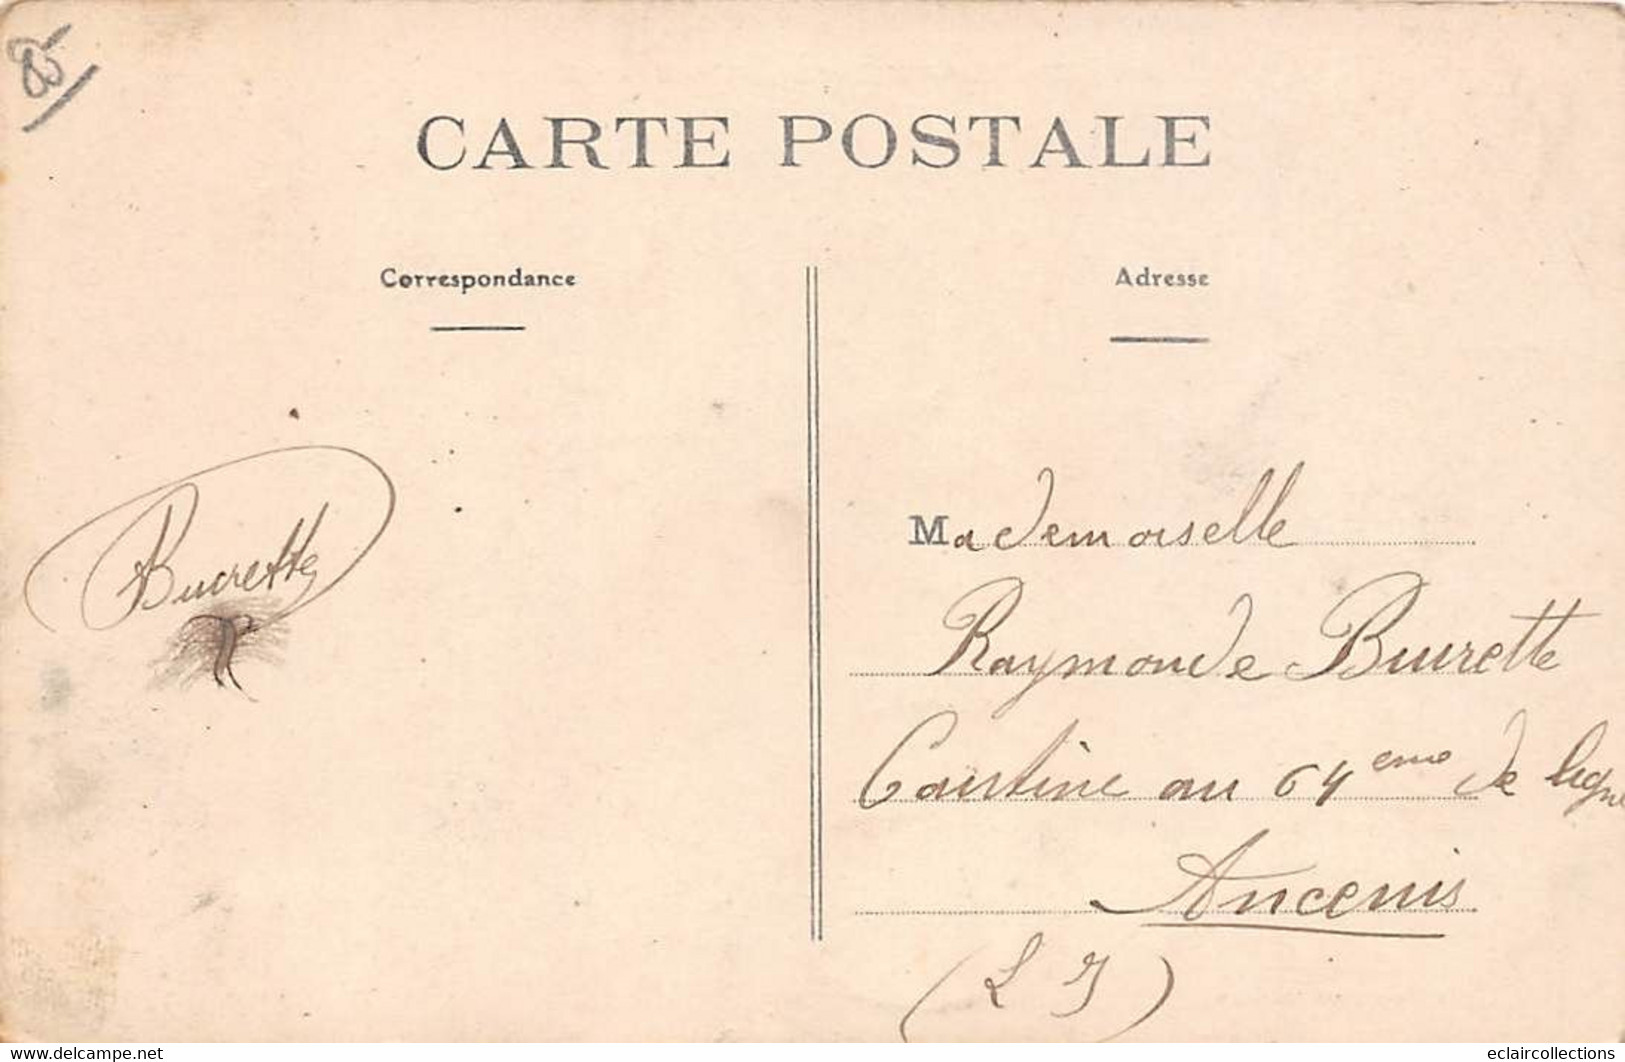 85
CARTE POSTALE
Correspondance
Adresse
Burette
Mademoiselle
Raymonde Burette
Cantine au 64eme de ligne
Ancenis
(L I)
www.delcampe.net
eclaircollections